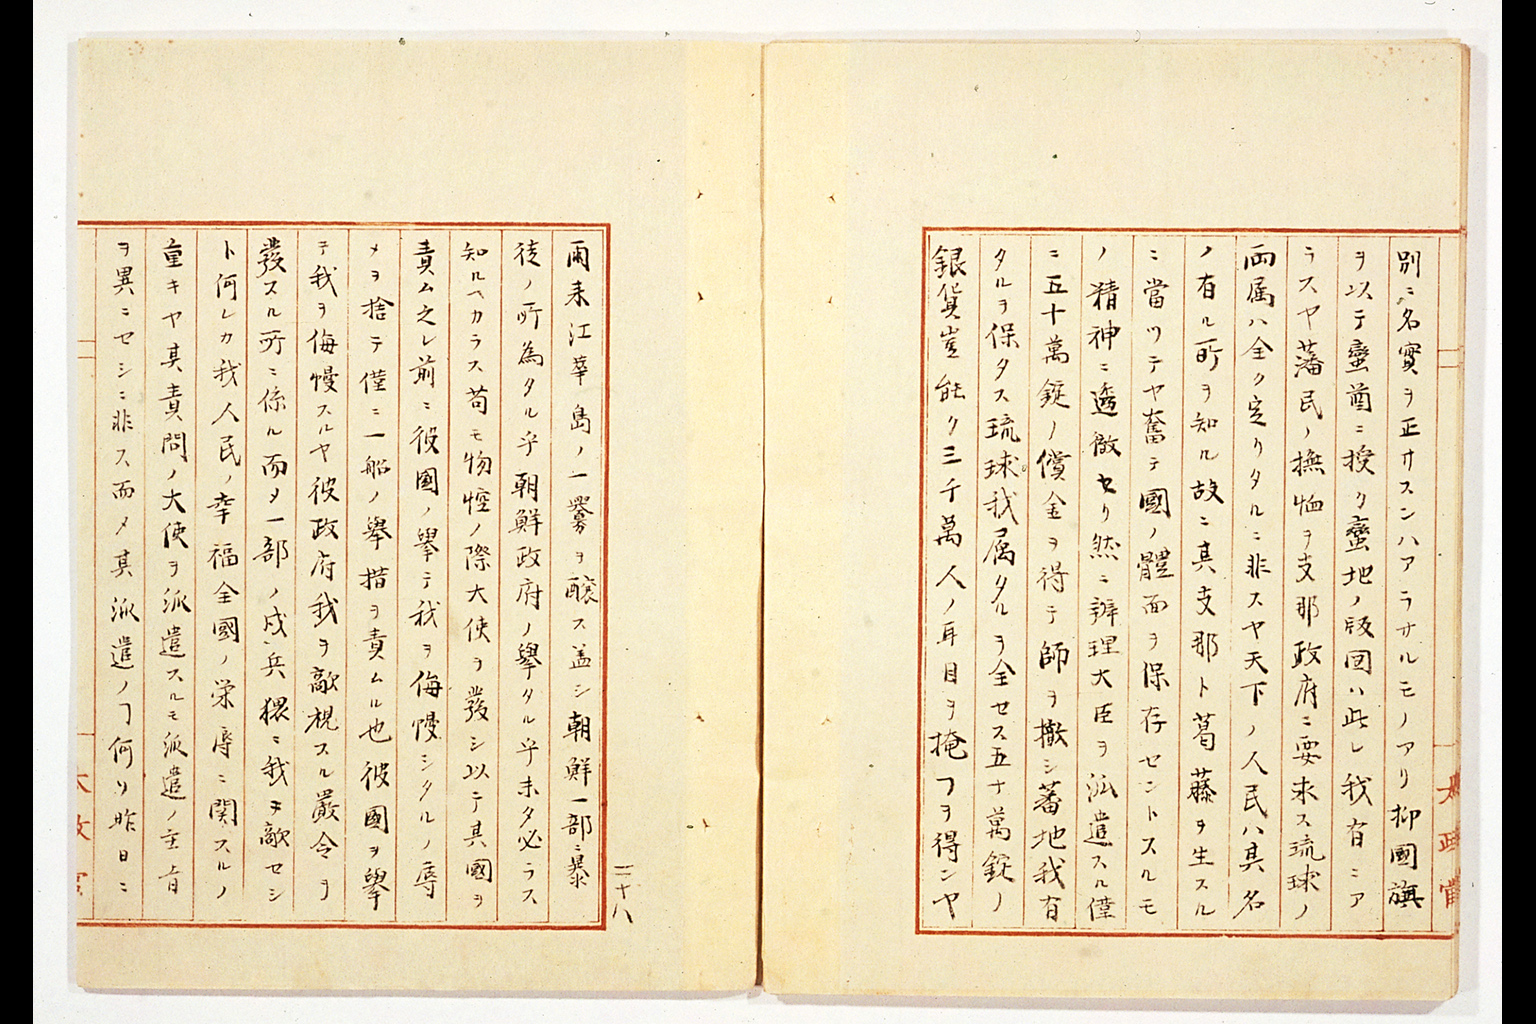 別ニ名實ヲ正サスンハアラサルモノアリ抑國旗
ヲ以テ蠻酋ニ授ケ蠻地ノ版図ハ此レ我有ニア
ラスヤ藩民ノ撫恤ヲ支那政府ニ要求ス琉球ノ
両属ハ全ク定リタルニ非スヤ天下ノ人民ハ其名
ノ有ル所ヲ知ル故ニ其支那ト葛藤ヲ生スル
ニ當ツテヤ奮テ國ノ體面ヲ保存セントスルモ
ノ精神ニ透徹セリ然ニ辨理大臣ヲ派遣スル僅
ニ五十萬錠ノ償金ヲ得テ師ヲ撤シ蕃地我有
タルヲ保タス琉球我属タルヲ全セス五十萬錠ノ
銀貨豈能ク三千萬人ノ耳目ヲ掩フヲ得ンヤ
太政官
二十八
爾来江華島ノ一釁ヲ醸ス盖シ朝鮮一部ニ暴
徒ノ所為タル乎朝鮮政府ノ擧タル乎未タ必ラス
知ルヘカラス苟モ物情ノ際大使ヲ發シ以テ其國ヲ
責ム之レ前ニ彼國ノ擧テ我ヲ侮慢シタルノ辱
メヲ捨テ僅ニ一船ノ擧措ヲ責ムル也彼國ヲ擧
テ我ヲ侮慢スルヤ彼政府我ヲ敵視スル嚴令ヲ
發スル所ニ係ル而メ一部ノ戍兵猥ニ我ヲ敵セシ
ト何レカ我人民ノ幸福全國ノ栄辱ニ関スルノ
重キヤ其責問ノ大使ヲ派遣スルモ派遣ノ主旨
ヲ異ニセシニ非ス而メ其派遣ノヿ何ソ昨日ニ
太政官